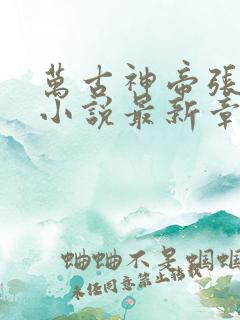 萬古神帝張
小說最新章
蛐蛐不是蟈蟈
未經同意禁止轉載